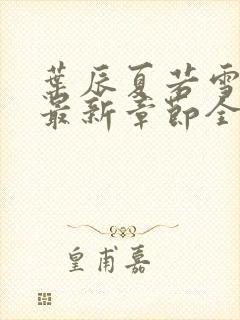 葉辰夏若雪
最新章節全
皇甫嘉